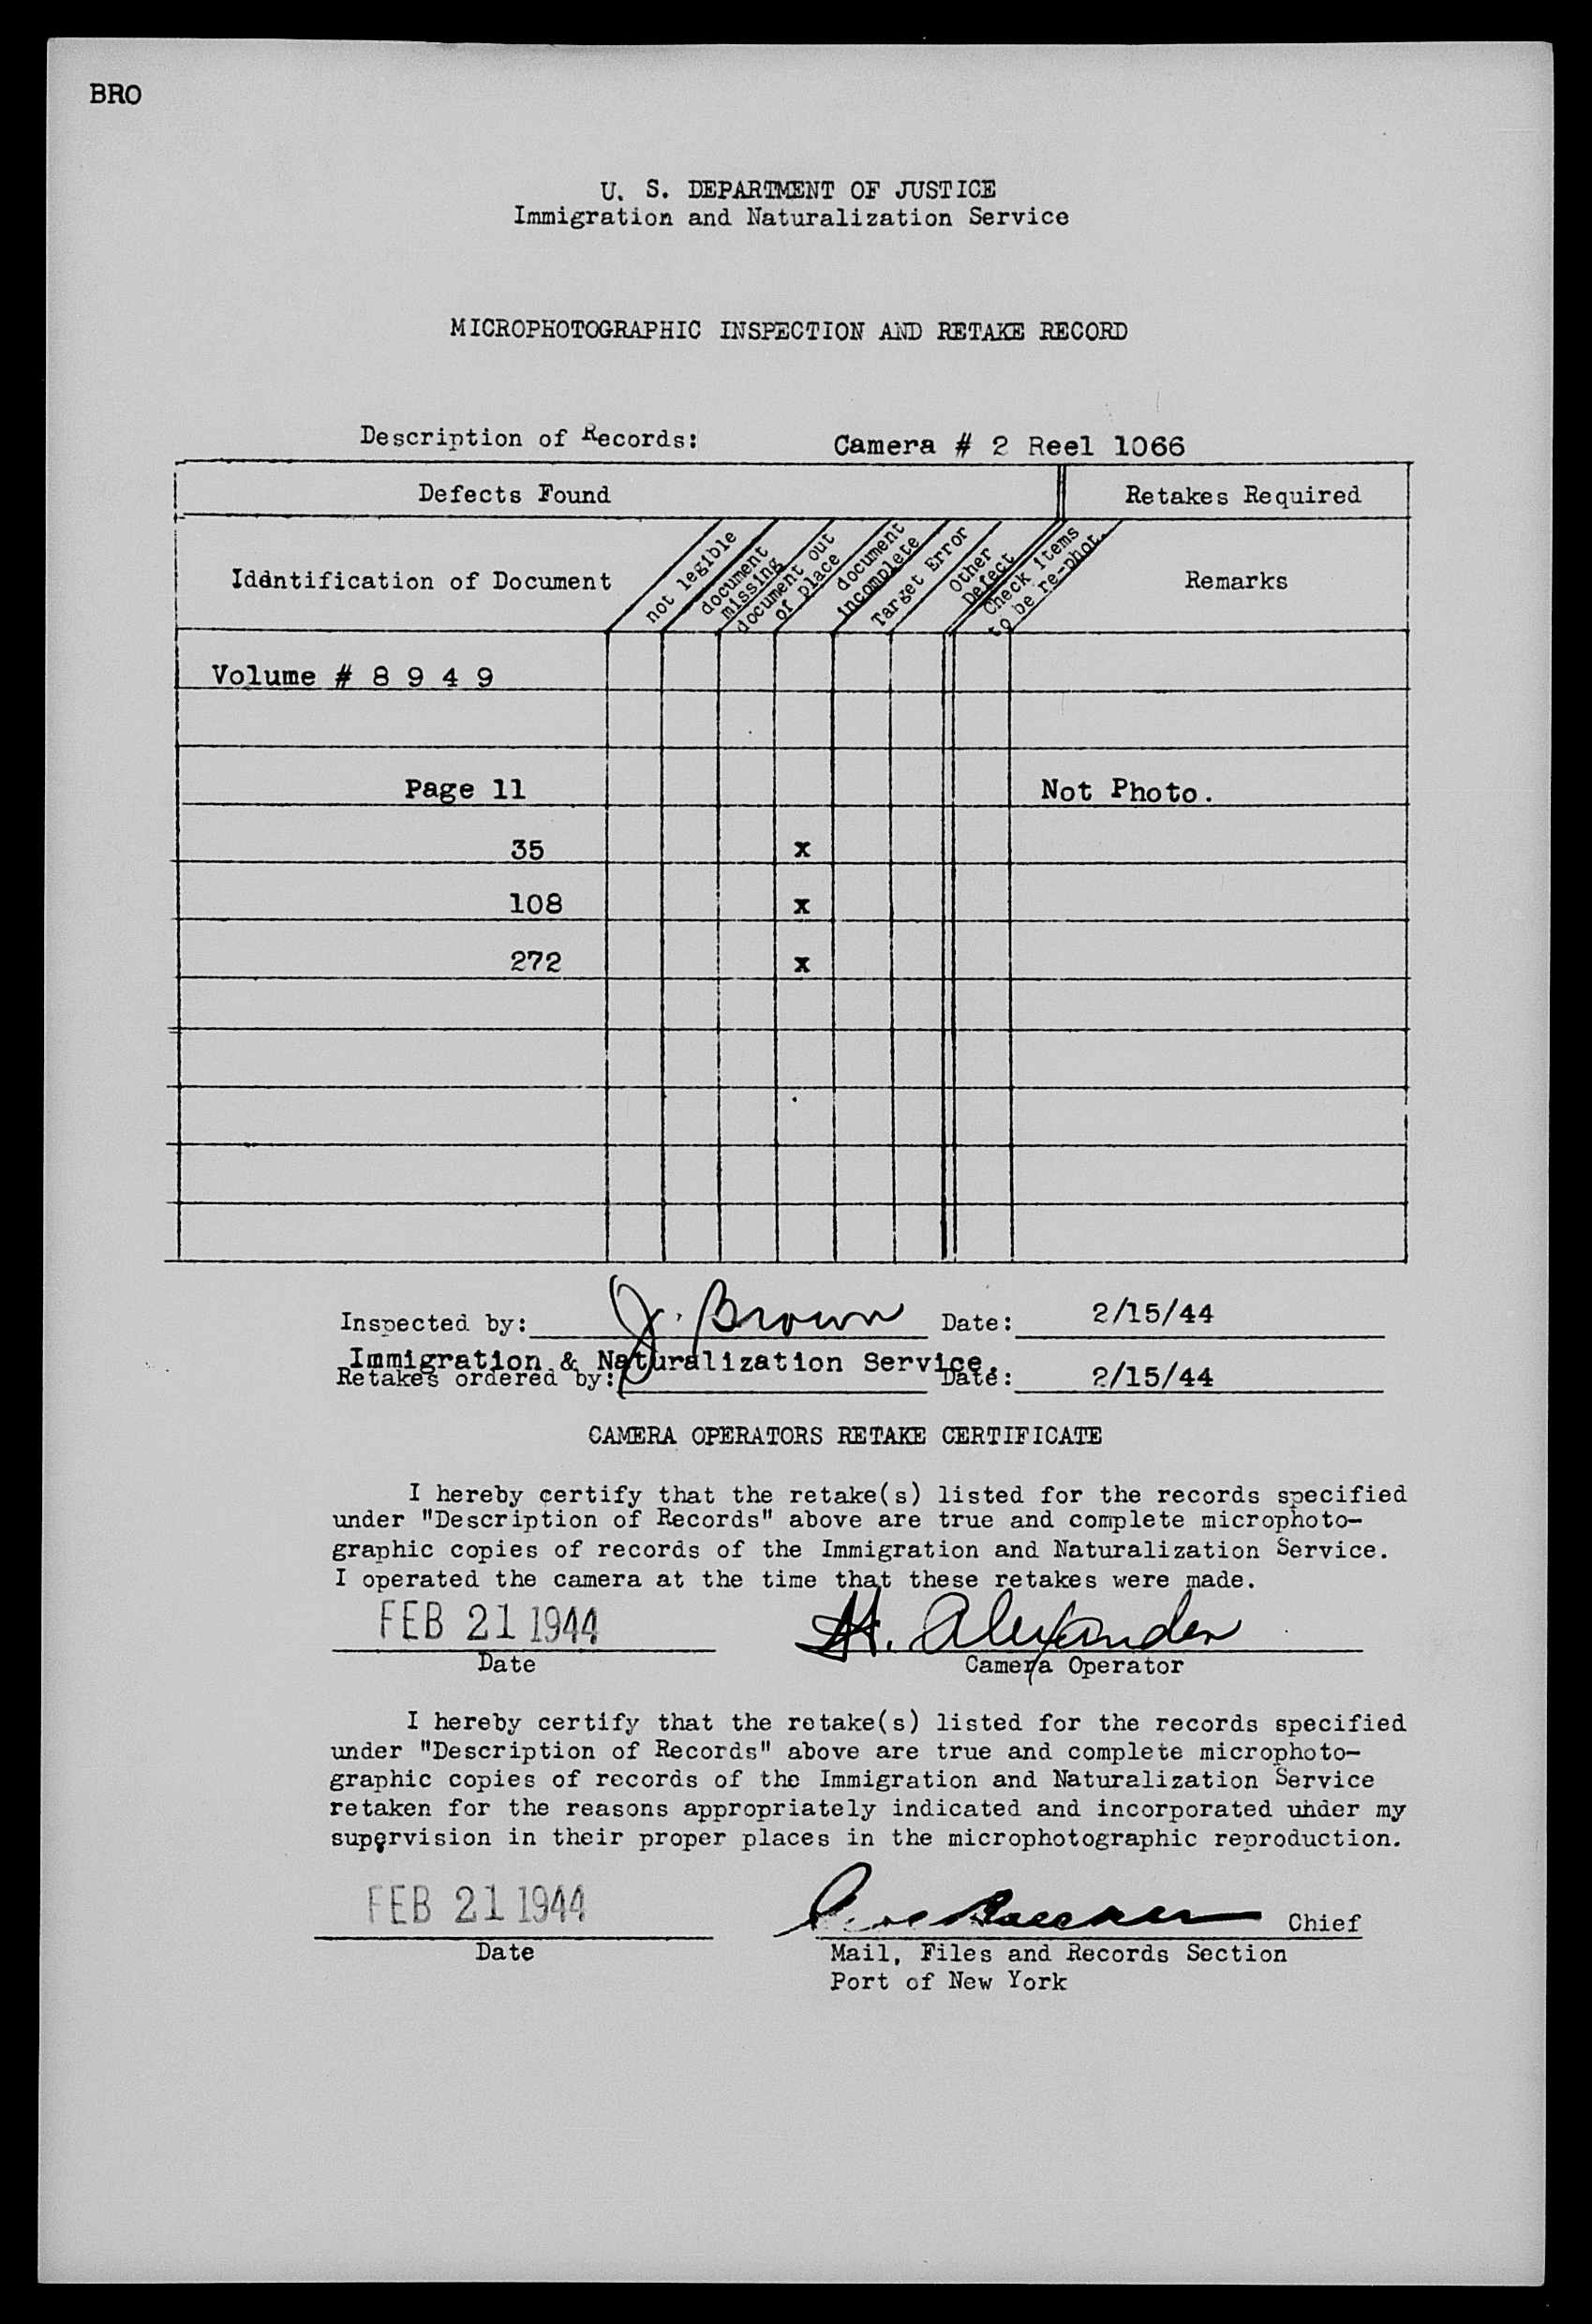 BRO
U. S. DEPARTMENT OF JUSTICE
Immigration and Naturalization Service
MICROPHOTOGRAPHIC INSPECTION AND RETAKE RECORD
Description of Records: Camera # 2 Reel 1066
Defects Found Retakes Required
Identification of Document
not legible
document missing
document out of place
document incomplete
Target Error
Other Defect
Check items to be re-phot.
Remarks
Volume # 8 9 4 9
Page 11 Not Photo.
35 x
108 x
272 x
Inspected by: J. Brown Date: 2/15/44
Immigration & Naturalization Service.
Retakes ordered by: Date: 2/15/44
CAMERA OPERATORS RETAKE CERTIFICATE
I hereby certify that the retake(s) listed for the records specified
under "Description of Records" above are true and complete microphoto-
graphic copies of records of the Immigration and Naturalization Service.
I operated the camera at the time that these retakes were made.
FEB 21 1944 H. Alexander
Date Camera Operator
I hereby certify that the retake(s) listed for the records specified
under "Description of Records" above are true and complete microphoto-
graphic copies of records of the Immigration and Naturalization Service
retaken for the reasons appropriately indicated and incorporated under my
supervision in their proper places in the microphotographic reproduction.
FEB 21 1944 Chief
Date Mail, Files and Records Section
Port of New York